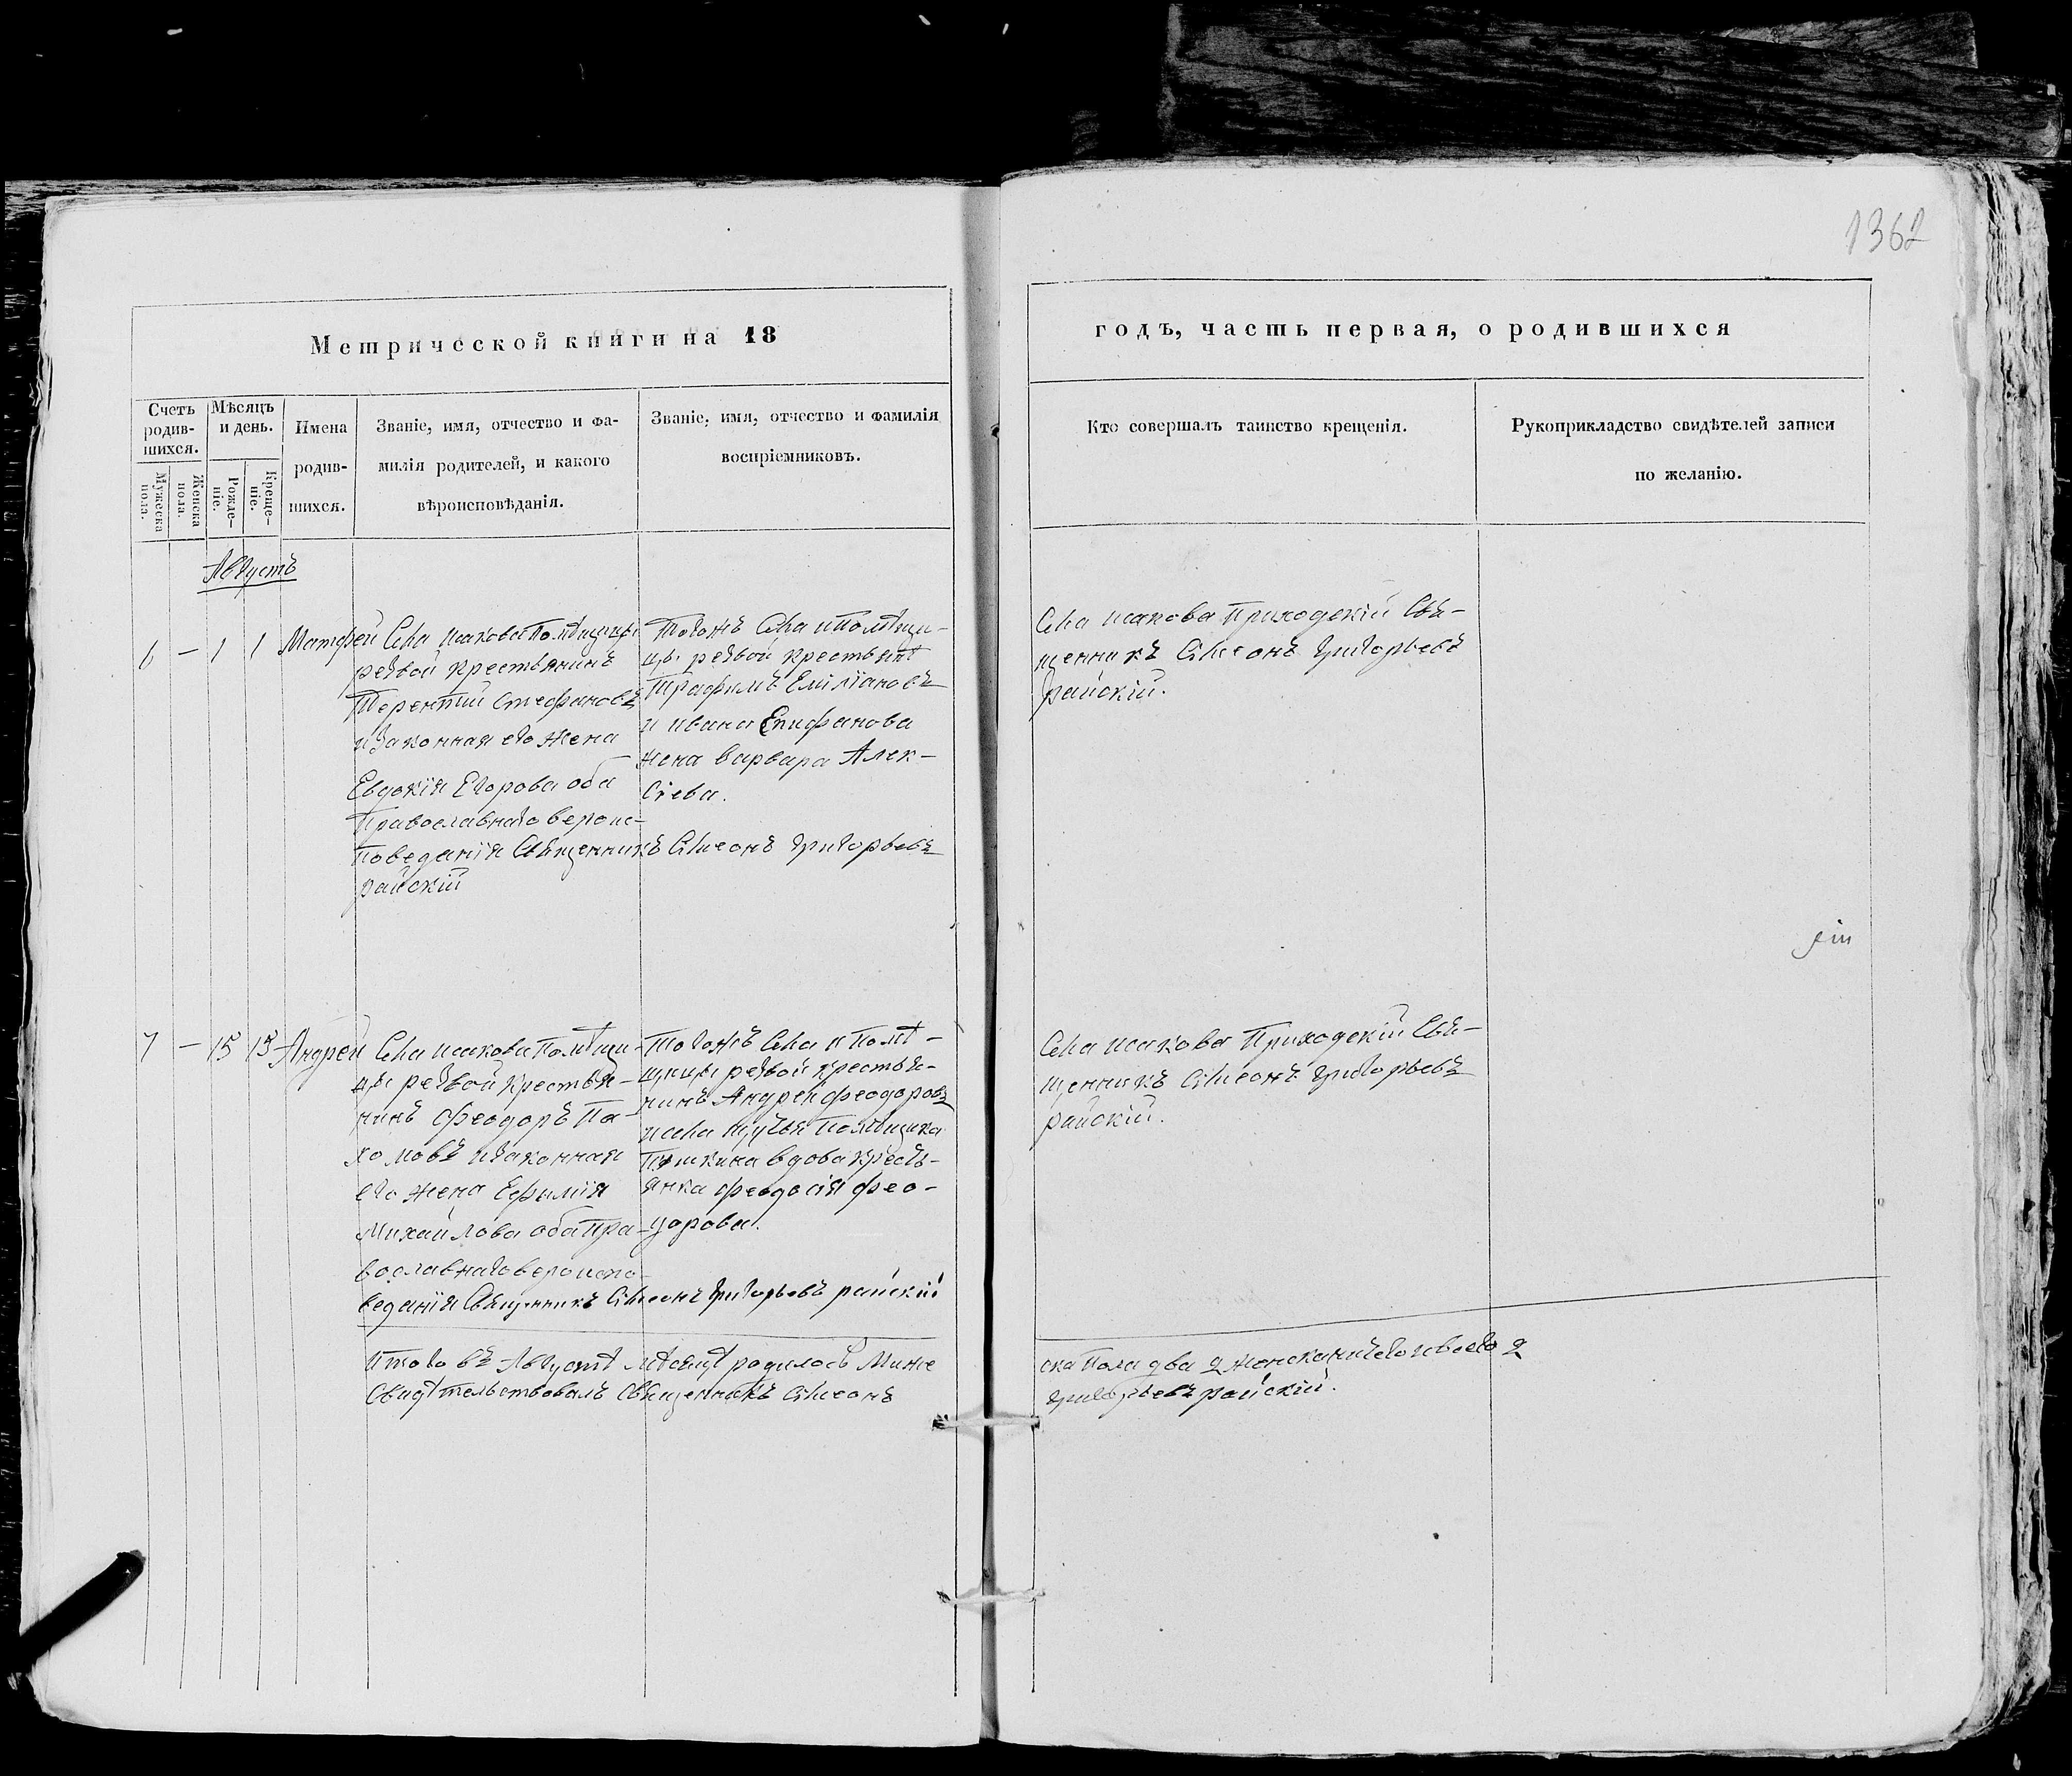 1362
Метрической книги на 18
годъ, часть первая, о родившихся
Счетъ родив-шихся.
Мужеска пола.
Женска пола.
Мѣсяцъ и день.
Рожде-ніе.
Креще-ніе.
Имена
родив-
шихся.
Званіе, имя, отчество и фа-
милія родителей, и какого
вѣроисповѣданія.
Званіе, имя, отчество и фамилія
воспріемниковъ.
Кто совершалъ таинство крещенія.
Рукоприкладство свидѣтелей записи
по желанію.
Августъ
6 — 1 1 Матфей
Села исакова Помѣщицы
резвой крестьянинъ
Терентий Стефановъ
и законная его жена
Евдокія Егорова оба
Православнаго вероис-
поведанія Священникъ Симеонъ Григорьевъ
райскій
Тогожъ Села и Помѣщи-
цы резвой крестьянъ
Трафимъ Емиліановъ
и ивана Епифанова
жена варвара Алек-
сіева.
Села исакова Приходскій Свя-
щенникъ Симеонъ Григорьевъ
райскій.
7 — 15 15 Андрей
Села исакова Помѣщи-
цы резвой крестья-
нинъ Феодоръ Па-
хомовъ и законная
его жена Ефимія
Михайлова оба Пра-
вославнаго вероиспо-
веданія Священникъ Симеонъ Григорьевъ райскій
Тогожъ Села и Помѣ-
щицы резвой крестья-
нинъ Андрей Феодоровъ
и села Помѣщика
вдова кресть-
янка Феодосія Фео-
дорова.
Села исакова Приходскій Свя-
щенникъ Симеонъ Григорьевъ
райскій.
Итого въ Августѣ мѣсяцѣ родилось Муже
ска Пола два 2 женска ничего и всего 2
Свидѣтельствовалъ Священникъ Симеонъ
Григорьевъ райскій.